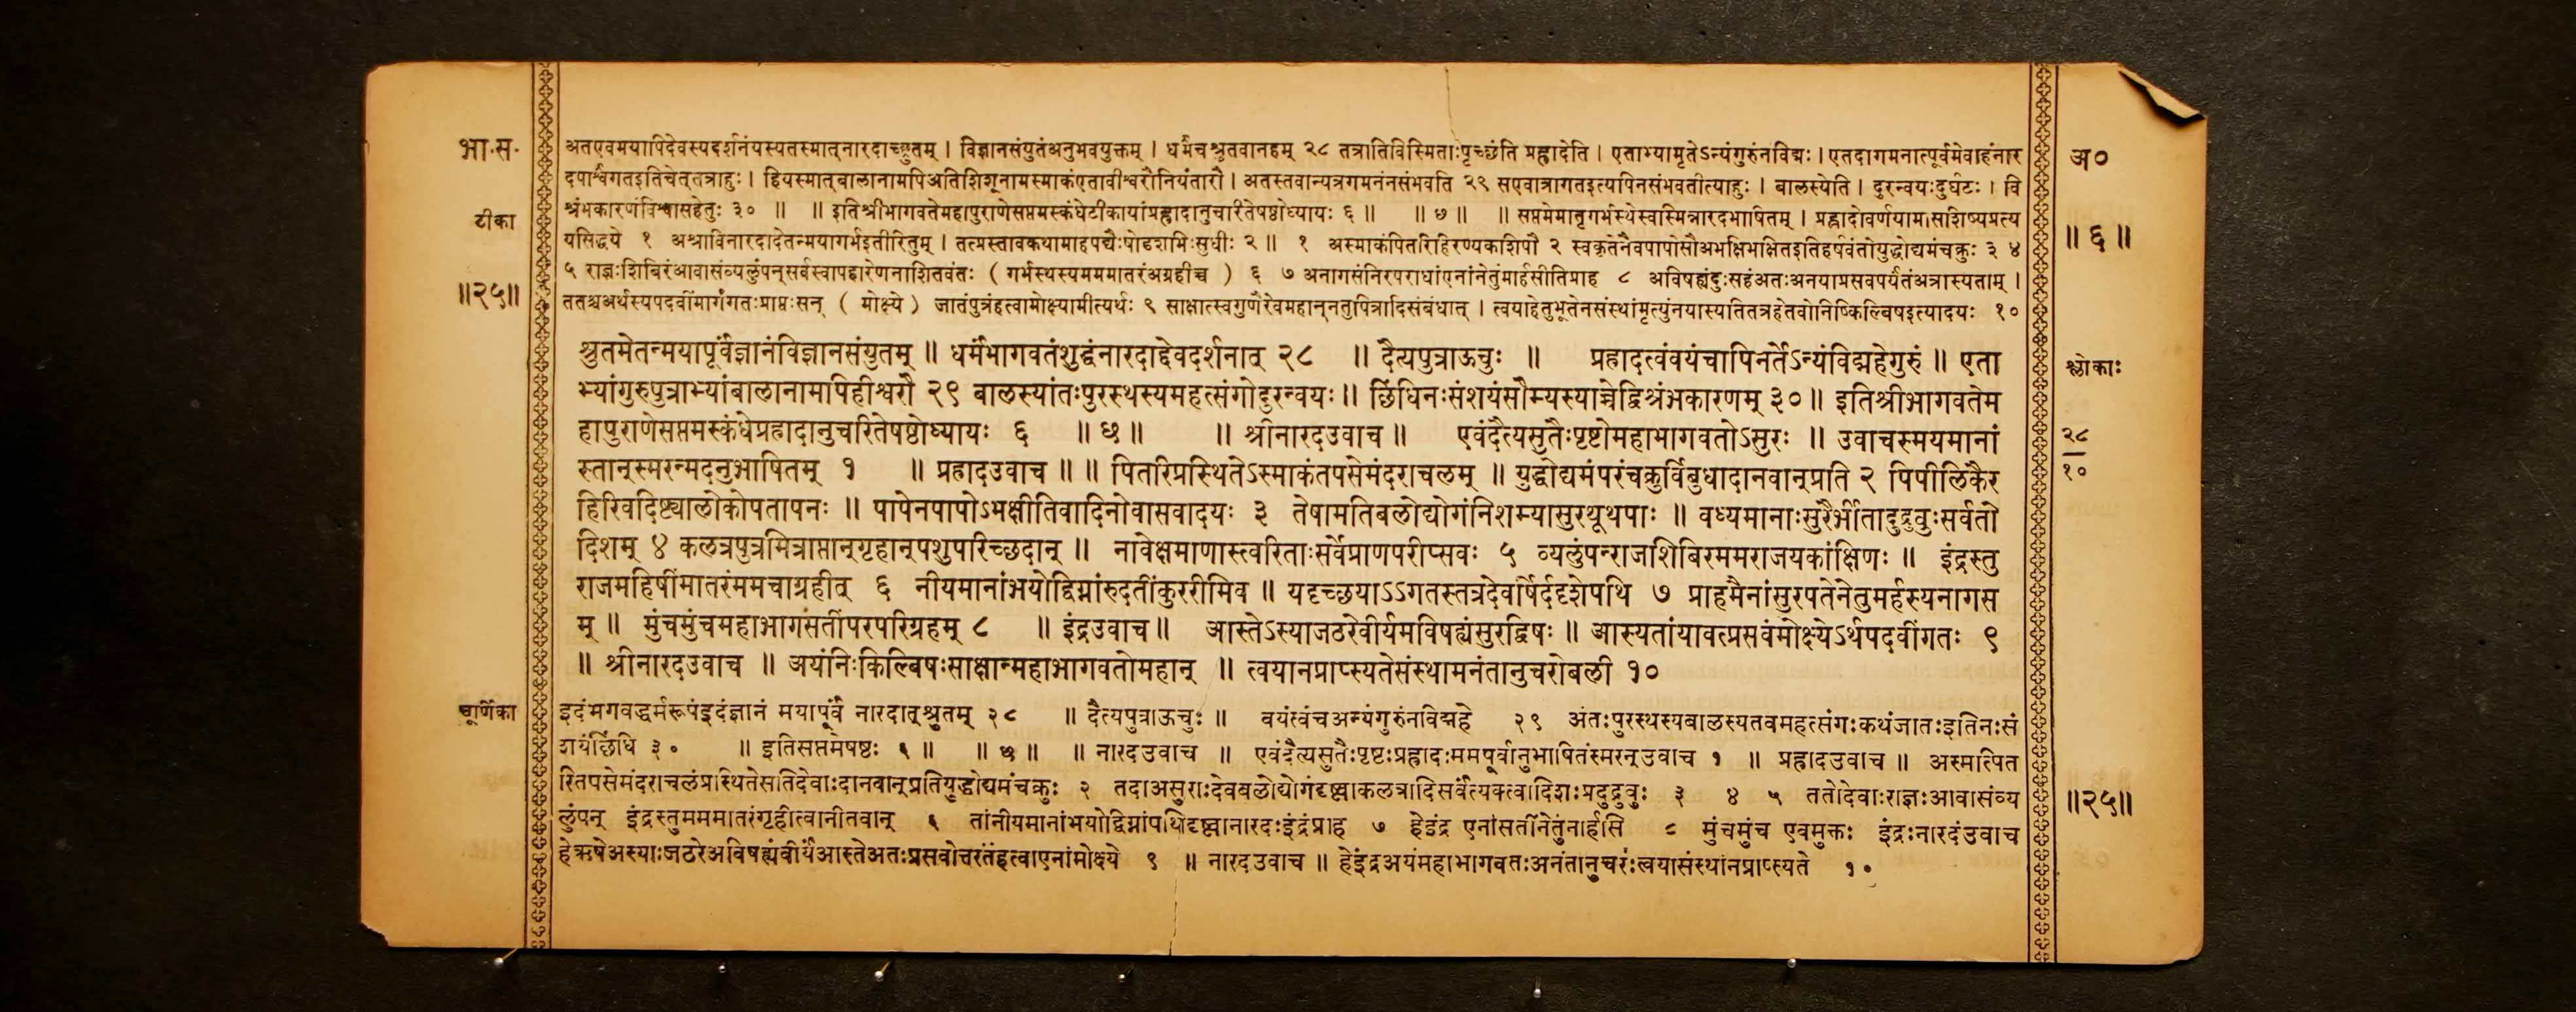 भा.स.
अतएवमयापिदेवस्यदर्शनंयस्यतस्मात्नारदाच्छ्रुतम् । विज्ञानसंयुतंअनुभवयुक्तम् । धर्मंचश्रुतवानहम् २८ तत्रातिविस्मिताःपृच्छंति प्रह्लादेति । एताभ्यामृतेऽन्यंगुरुंनविद्मः । एतदागमनात्पूर्वमेवाहंनार
अ०
दपार्श्वंगतइतिचेत्तत्राहुः । हियस्मात्बालानामपिअतिशिशूनामस्माकंएतावीश्वरौनियंतारौ । अतस्तवान्यत्रगमनंनसंभवति २९ सएवात्रागतइत्यपिनसंभवतीत्याहुः । बालस्येति । दुरन्वयःदुर्घटः । वि
टीका
श्रंभकारणंविश्वासहेतुः ३० ॥ ॥ इतिश्रीभागवतेमहापुराणेसप्तमस्कंधेटीकायांप्रह्लादानुचरितेषष्ठोध्यायः ६ ॥ ॥ ७ ॥ ॥ सप्तमेमातृगर्भस्थेस्वस्मिन्नारदभाषितम् । प्रह्लादोवर्णयामासशिष्यप्रत्य
यसिद्धये १ अश्राविनारदादेतन्मयागर्भइतीरितुम् । तत्प्रस्तावकथामाहपद्यैःषोडशभिःसुधीः २ ॥ १ अस्माकंपितरिहिरण्यकशिपौ २ स्वकृतेनैवपापोसौअभक्षिभक्षितइतिहर्षवंतोयुद्धोद्यमंचक्रुः ३ ४
॥ ६ ॥
५ राज्ञःशिबिरंआवासंव्यलुंपन्सर्वस्वापहारेणनाशितवंतः ( गर्भस्थस्यमममातरंअग्रहीच्च ) ६ ७ अनागसंनिरपराधांएनांनेतुंमार्हसीतिप्राह ८ अविषह्यंदुःसहंअतःअनयाप्रसवपर्यंतंअत्रास्यताम् ।
॥२५॥
ततश्चअर्थस्यपदवींमार्गंगतःप्राप्तःसन् ( मोक्ष्ये ) जातंपुत्रंहत्वामोक्ष्यामीत्यर्थः ९ साक्षात्स्वगुणैरेवमहान्नतुपित्रादिसंबंधात् । त्वयाहेतुभूतेनसंस्थांमृत्युंनयास्यतितत्रहेतवोनिष्किल्बिषइत्यादयः १०
श्रुतमेतन्मयापूर्वंज्ञानंविज्ञानसंयुतम् ॥ धर्मंभागवतंशुद्धंनारदाद्देवदर्शनात् २८ ॥ दैत्यपुत्राऊचुः ॥ प्रह्रादत्वंवयंचापिनर्तेऽन्यंविद्महेगुरुं ॥ एता
श्लोकाः
भ्यांगुरुपुत्राभ्यांबालानामपिहीश्वरौ २९ बालस्यांतःपुरस्थस्यमहत्संगोदुरन्वयः ॥ छिंधिनःसंशयंसौम्यस्याच्चेद्विश्रंभकारणम् ३० ॥ इतिश्रीभागवतेम
हापुराणेसप्तमस्कंधेप्रह्रादानुचरितेषष्ठोध्यायः ६ ॥ ७ ॥ ॥ श्रीनारदउवाच ॥ एवंदैत्यसुतैःपृष्टोमहाभागवतोऽसुरः ॥ उवाचस्मयमानां
२८
स्तान्स्मरन्मदनुभाषितम् १ ॥ प्रह्रादउवाच ॥ ॥ पितरिप्रस्थितेऽस्माकंतपसेमंदराचलम् ॥ युद्धोद्यमंपरंचक्रुर्विबुधादानवान्प्रति २ पिपीलिकैर
१०
हिरिवदिष्ट्यालोकोपतापनः ॥ पापेनपापोऽभक्षीतिवादिनोवासवादयः ३ तेषामतिबलोद्योगंनिशम्यासुरयूथपाः ॥ वध्यमानाःसुरैर्भीतादुद्रुवुःसर्वतो
दिशम् ४ कलत्रपुत्रमित्राप्तान्गृहान्पशुपरिच्छदान् ॥ नावेक्षमाणास्त्वरिताःसर्वेप्राणपरीप्सवः ५ व्यलुंपन्राजशिबिरममराजयकांक्षिणः ॥ इंद्रस्तु
राजमहिषींमातरंममचाग्रहीत् ६ नीयमानांभयोद्विग्नांरुदतींकुररीमिव ॥ यदृच्छयाऽऽगतस्तत्रदेवर्षिर्ददृशेपथि ७ प्राहमैनांसुरपतेनेतुमर्हस्यनागस
म् ॥ मुंचमुंचमहाभागसतींपरपरिग्रहम् ८ ॥ इंद्रउवाच ॥ आस्तेऽस्याजठरेवीर्यमविषह्यंसुरद्विषः ॥ आस्यतांयावत्प्रसवंमोक्ष्येऽर्थपदवींगतः ९
॥ श्रीनारदउवाच ॥ अयंनिःकिल्बिषःसाक्षान्महाभागवतोमहान् ॥ त्वयानप्राप्स्यतेसंस्थामनंतानुचरोबली १०
चूर्णिका
इदंभगवद्धर्मरूपंइदंज्ञानं मयापूर्वं नारदात्श्रुतम् २८ ॥ दैत्यपुत्राऊचुः ॥ वयंत्वंचअन्यंगुरुंनविद्महे २९ अंतःपुरस्थस्यबालस्यतवमहत्संगःकथंजातःइतिनःसं
शयंछिंधि ३० ॥ इतिसप्तमेषष्ठः ६ ॥ ॥ ७ ॥ ॥ नारदउवाच ॥ एवंदैत्यसुतैःपृष्टःप्रह्रादःममपूर्वानुभाषितंस्मरन्उवाच १ ॥ प्रह्रादउवाच ॥ अस्मत्पित
रितपसेमंदराचलंप्रस्थितेसतिदेवाःदानवान्प्रतियुद्धोद्यमंचक्रुः २ तदाअसुराःदेवबलोद्योगंदृष्ट्वाकलत्रादिसर्वंत्यक्त्वादिशःप्रदुद्रुवुः ३ ४ ५ ततोदेवाःराज्ञःआवासंव्य
॥२५॥
लुंपन् इंद्रस्तुमममातरंगृहीत्वानीतवान् ६ तांनीयमानांभयोद्विग्नांपथिदृष्ट्वानारदःइंद्रंप्राह ७ हेइंद्र एनांसतींनेतुंनार्हसि ८ मुंचमुंच एवमुक्तः इंद्रःनारदंउवाच
हेऋषेअस्याःजठरेअविषह्यंवीर्यंआस्तेअतःप्रसवोत्तरंतंहत्वाएनांमोक्ष्ये ९ ॥ नारदउवाच ॥ हेइंद्रअयंमहाभागवतःअनंतानुचरःत्वयासंस्थांनप्राप्स्यते १०